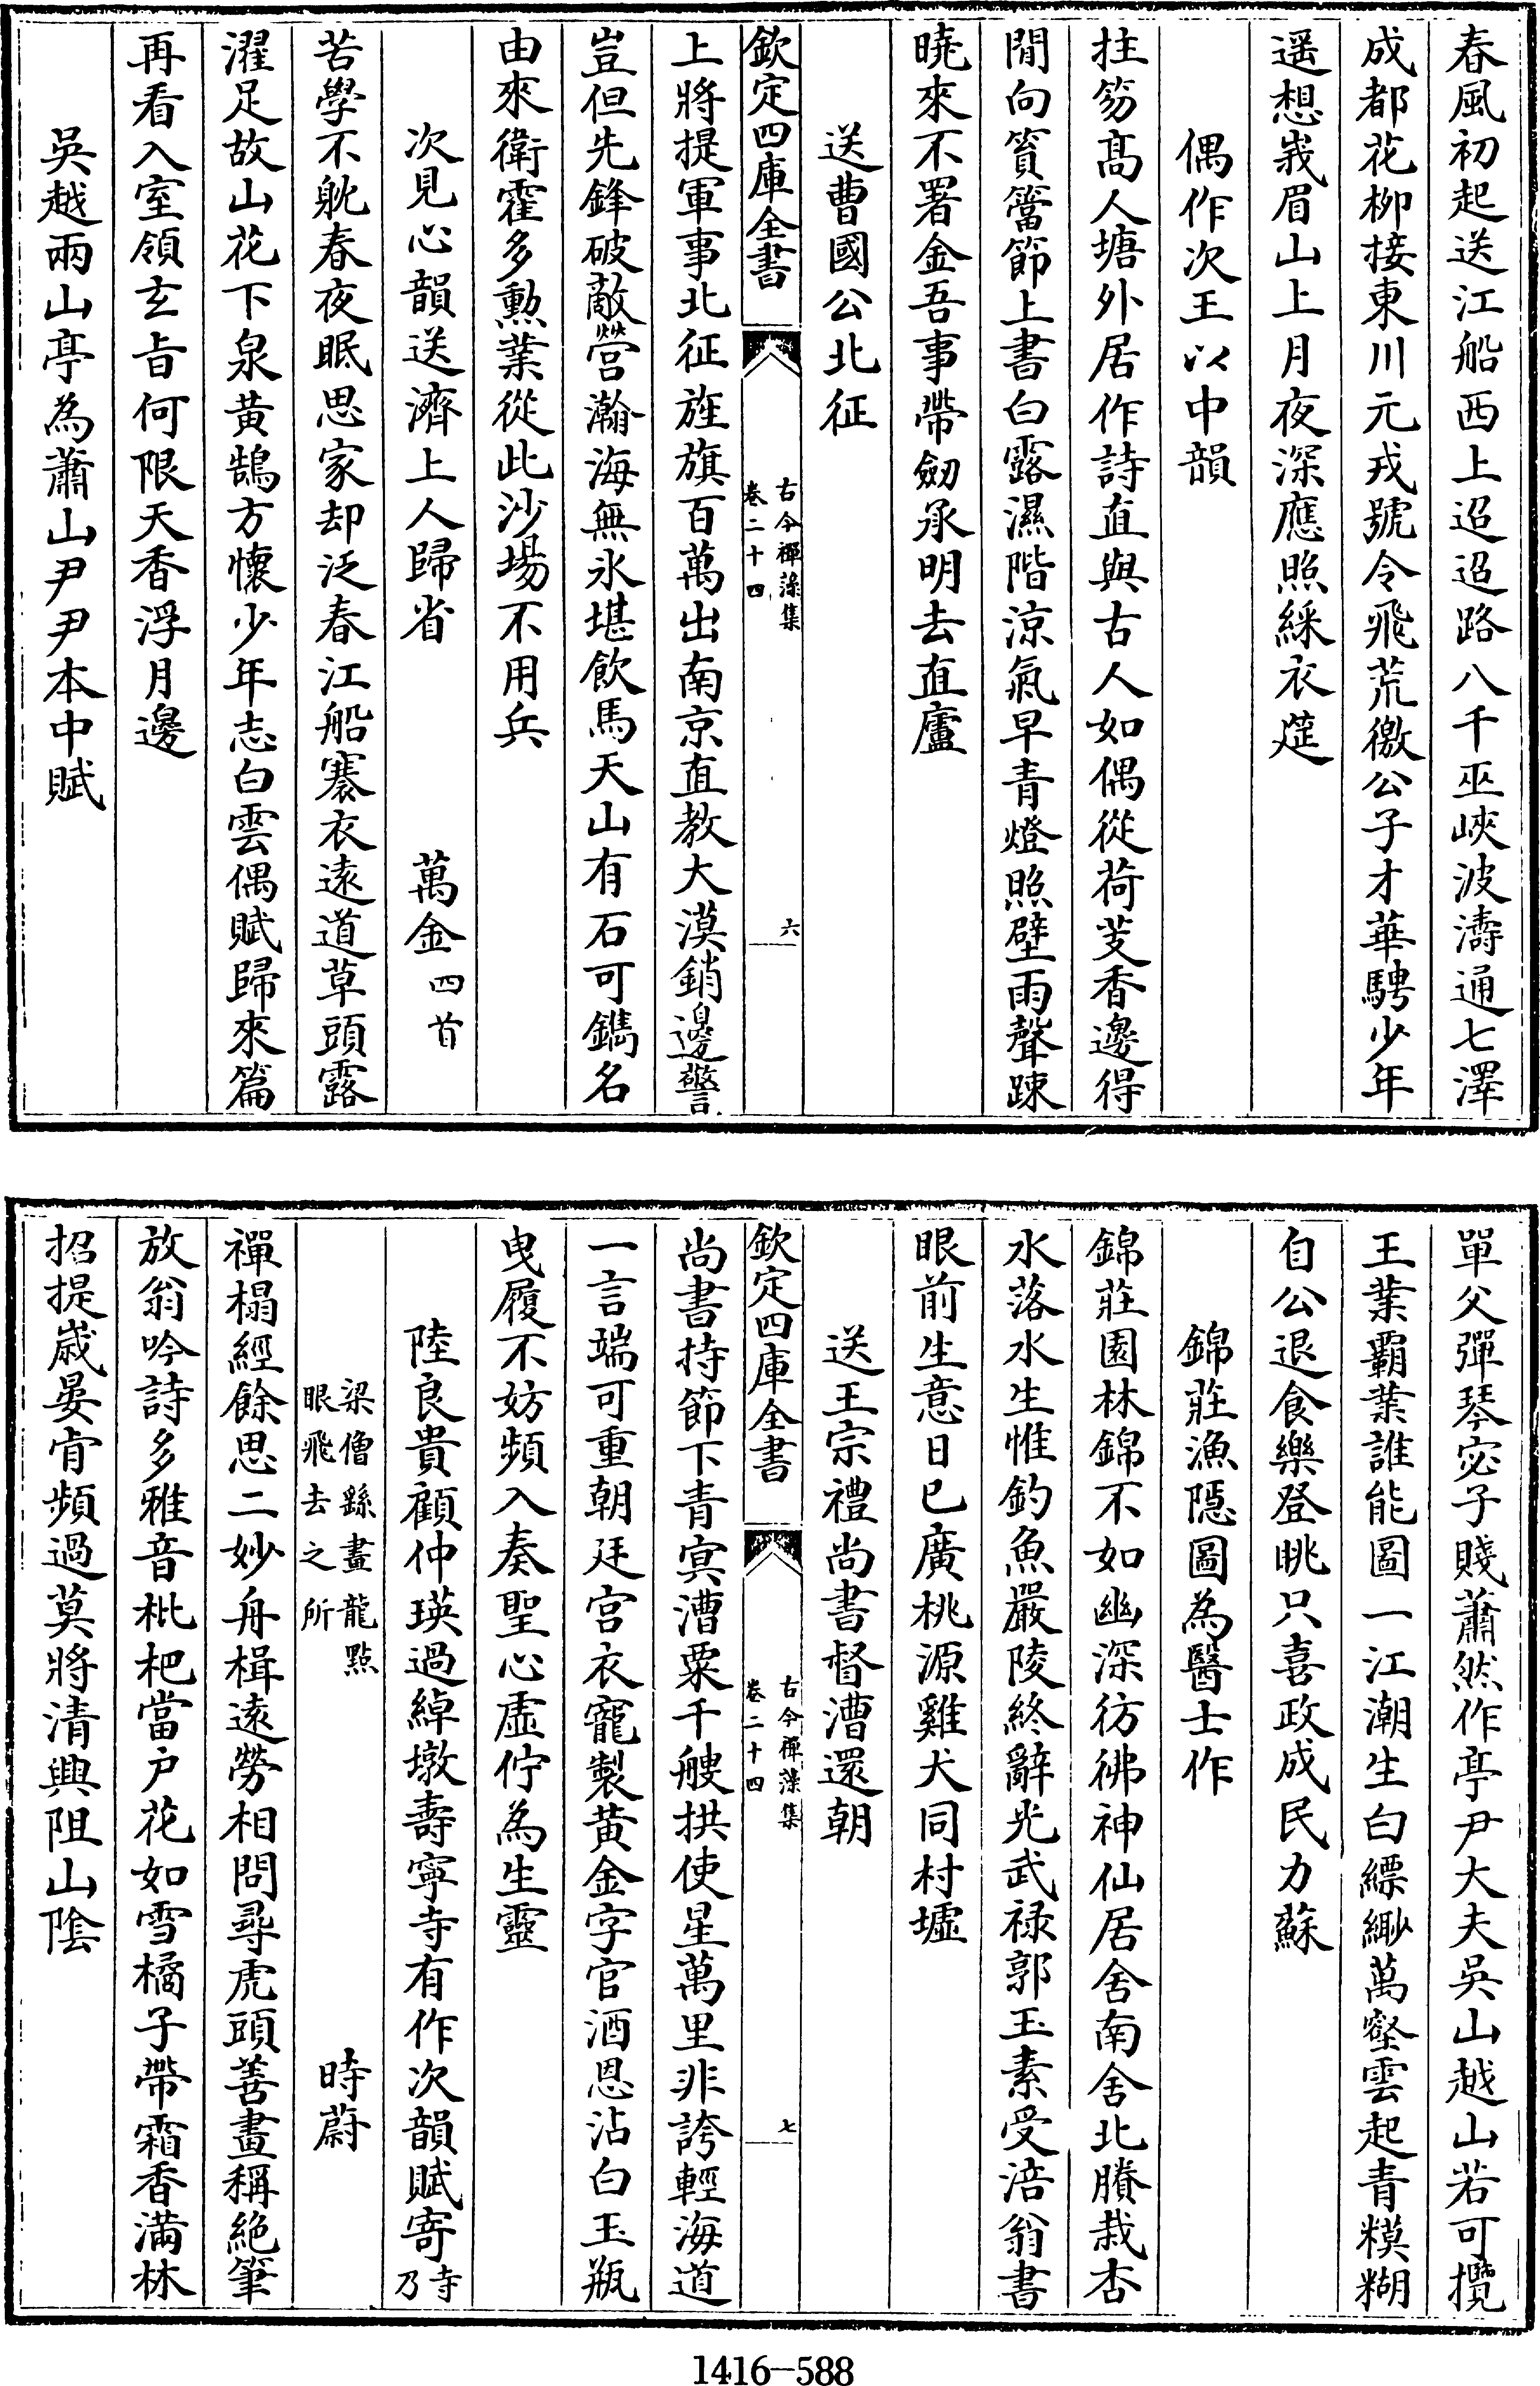 春風初起送江船西上迢迢路八千巫峽波濤通七澤
成都花柳接東川元戎號令飛荒徼公子才華騁少年
遥想峩眉山上月夜深應照綵衣筵
偶作次王以中韻
拄笏髙人塘外居作詩直與古人如偶從荷芰香邊得
閒向篔簹節上書白露濕階涼氣早青燈照壁雨聲踈
曉來不署金吾事帶劒承明去直廬
送曹國公北征
欽定四庫全書
古今禪藻集
卷二十四
六
上將提軍事北征旌旗百萬出南京直教大漠銷邊警
豈但先鋒破敵營瀚海無氷堪飲馬天山有石可鐫名
由來衛霍多勲業從此沙場不用兵
次見心韻送濟上人歸省 萬金四首
苦學不躭春夜眠思家却泛春江船褰衣遠道草頭露
濯足故山花下泉黄鵠方懷少年志白雲偶賦歸來篇
再看入室領玄㫖何限天香浮月邊
吳越兩山亭為蕭山尹尹本中賦
單父彈琴宓子賤蕭然作亭尹大夫吳山越山若可攬
王業霸業誰能圖一江潮生白縹緲萬壑雲起青糢糊
自公退食樂登眺只喜政成民力蘇
錦莊漁隱圖為醫士作
錦莊園林錦不如幽深彷彿神仙居舍南舍北賸栽杏
水落水生惟釣魚嚴陵終辭光武禄郭玉素受涪翁書
眼前生意日已廣桃源雞犬同村墟
送王宗禮尚書督漕還朝
欽定四庫全書
古今禪藻集
卷二十四
七
尚書持節下青㝠漕粟千艘拱使星萬里非誇輕海道
一言端可重朝廷宫衣寵製黄金字官酒恩沾白玉瓶
曳履不妨頻入奏聖心虚佇為生靈
陸良貴顧仲瑛過綽墩壽寧寺有作次韻賦寄寺乃
梁僧繇畫龍點眼飛去之所 時蔚
禪榻經餘思二妙舟楫遠勞相問尋虎頭善畫稱絶筆
放翁吟詩多雅音枇杷當户花如雪橘子帶霜香滿林
招提歳晏肯頻過莫將清興阻山隂
1416-588